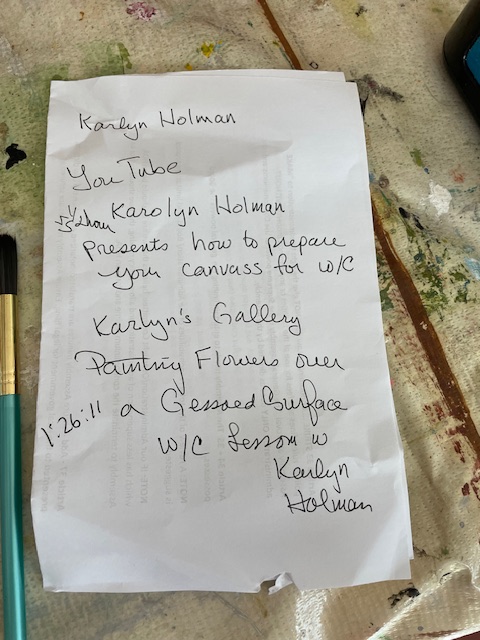 Karlyn Holman
YouTube
Karolyn Holman
presents how to prepare
your canvass for w/c
Karlyn's Gallery
Painting Flowers over
1:26:11 a Gessoed Surface
w/c Lesson w
Karlyn
Holman